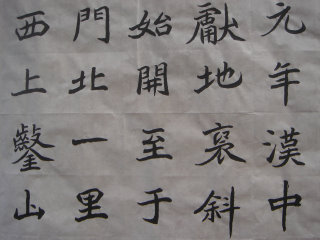 元年漢中
獻地裒斜
始開至于
門北一里
西上鑿山